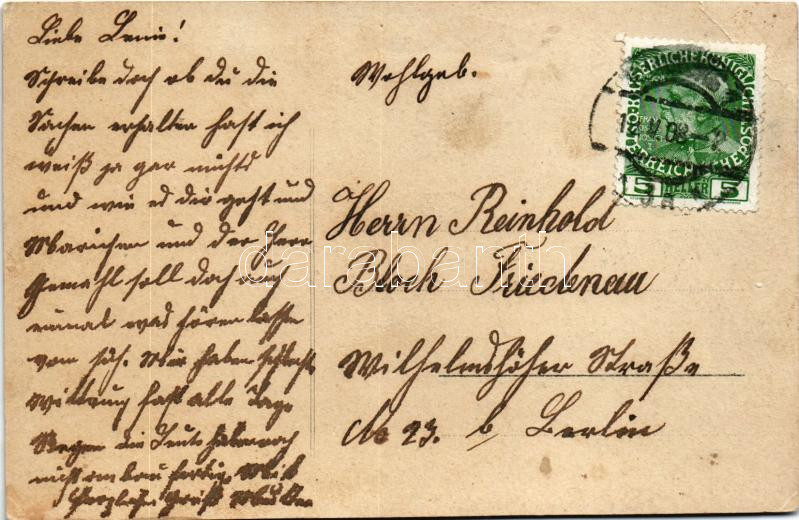 Liebe Lenie!
Schreibe doch ob du die
Sachen erhalten hast ich
weiß ja gar nichts
und wie es dir geht und
Mariechen und der Herr
Gemahl soll doch auch
einmal was hören lassen
von sich. Wir haben schlecht
Wittrung fast alle Tage
Regen die Leute haben noch
nicht anbau fertig. Mit
Herzlich. Gruß Mutter
Wohlgeb.
Herrn Reinhold
Bloch Friedenau
Wilhelmshöher Straße
No 23. b. Berlin
KAISERLICHE KÖNIGLICHE
ÖSTERREICHISCHE
5 HELLER 5
darabanth